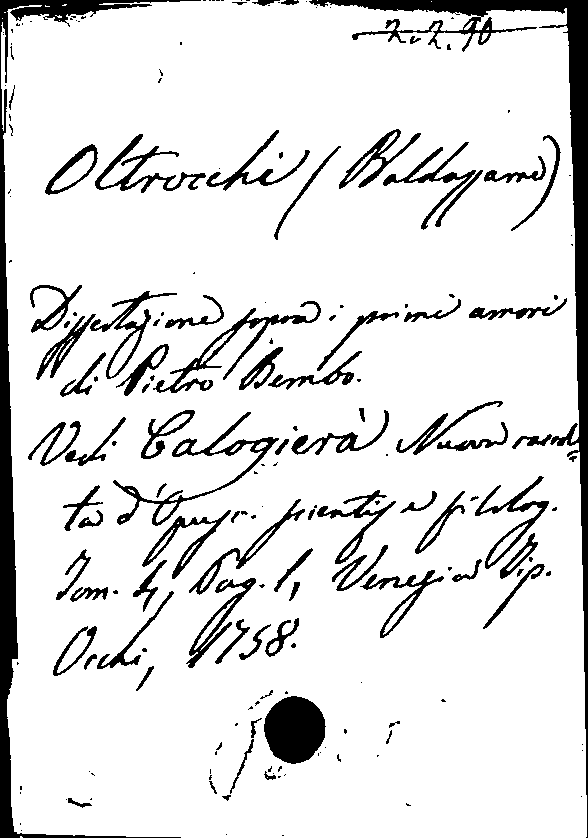 2.2.90
Oltrocchi (Baldassarre)
Dissertazione sopra i primi amori
di Pietro Bembo.
Vedi Calogierà Nuova raccol=
ta d'Opusc. scientif e filolog.
Tom. 4, Pag. 1, Venezia Tip.
Occhi, 1758.